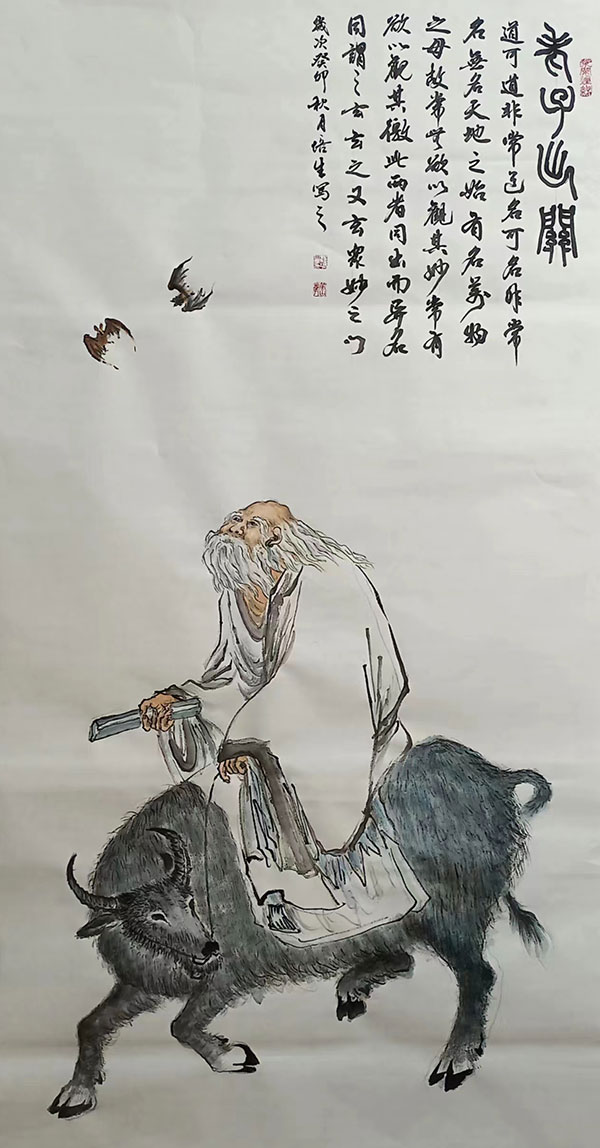 老子出關
道可道非常道名可名非常
名無名天地之始有名萬物
之母故常無欲以觀其妙常有
欲以觀其徼此兩者同出而異名
同謂之玄玄之又玄衆妙之門
歲次癸卯秋月培生寫之